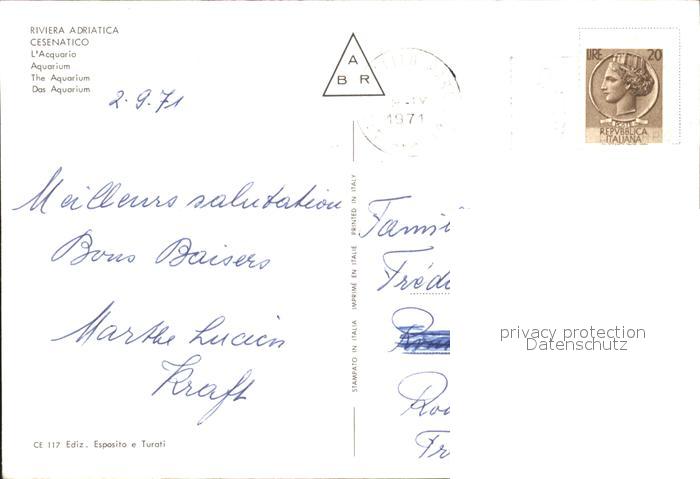 RIVIERA ADRIATICA
CESENATICO
L'Acquario
Aquarium
The Aquarium
Das Aquarium
2.9.71
A
B R
1971
LIRE 20
POSTE
REPVBBLICA
ITALIANA
Meilleurs salutation
Bons Baisers
Marthe Lucien
Kraft
STAMPATO IN ITALIA IMPRIMÉ EN ITALIE PRINTED IN ITALY
Fami
Frédé
Ro
Fr
privacy protection
Datenschutz
CE 117 Ediz. Esposito e Turati